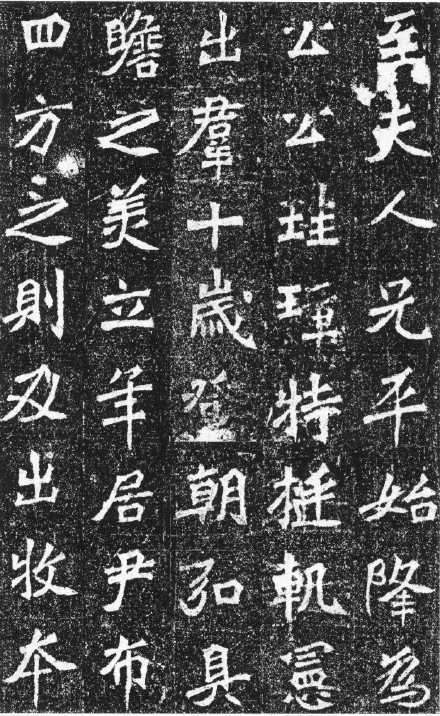 至夫人兄平始隆為
公公珪璋特挺軌憲
出羣十歲登朝弘具
瞻之美立年居尹布
四方之則及出牧夲